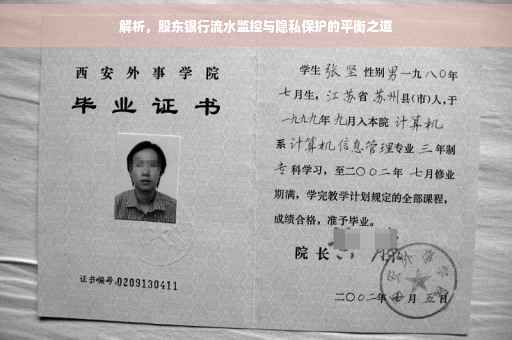 解析，股东银行流水监控与隐私保护的平衡之道
西安外事学院
毕业证书
证书编号:0209130411
学生 张坚 性别 男 一九八〇年
七月生，江苏省 苏州县(市)人,于
一九九九年 九月入本院 计算机
系 计算机信息管理专业 三 年制
专 科学习，至二〇〇二年 七月修业
期满，学完教学计划规定的全部课程，
成绩合格，准予毕业。
院长
二〇〇二年 七 月 五 日